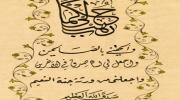 رب هب لي حكما
وألحقني بالصالحين
واجعل لي لسان صدق في الآخرين
واجعلني من ورثة جنة النعيم
صدق الله العظيم